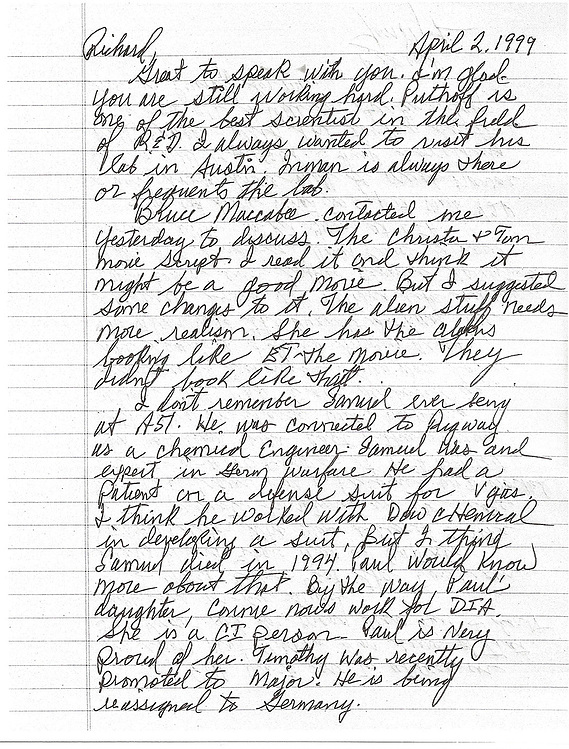 Richard, April 2, 1999
Great to speak with you. I'm glad
you are still working hard. Puthoff is
one of the best scientist in the field
of R&D. I always wanted to visit his
lab in Austin. Inman is always there
or frequents the lab.
Bruce Maccabee contacted me
yesterday to discuss. The Christa & Tom
movie script. I read it and think it
might be a good movie. But I suggested
some changes to it. The alien stuff needs
more realism. She has the aliens
looking like ET-The Movie. They
didn't look like that.
I don't remember Samuel ever being
at A51. He was connected to Dugway
as a chemical Engineer. Samuel was and
expert in germ warfare. He had a
Patient on a defense suit for V gas.
I think he worked with Dow cHemical
in developing a suit, But I thing
Samuel died in 1994. Paul would know
more about that. By the way, Paul'
daughter, Connie now's work for DIA.
She is a CI person. Paul is very
proud of her. Timothy was recently
promoted to Major. He is being
reassigned to Germany.